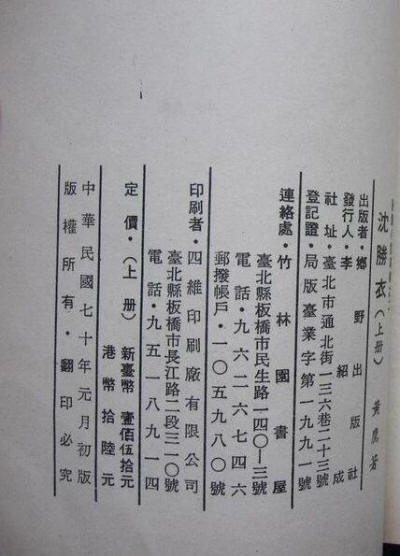 沈勝衣（上册） 黃鷹若
出版者・鄉野出版社
發行人・李紹成
社址・臺北市通北街一三六巷二十三號
登記證・局版臺業字第一九九一號
連絡處・竹林園書屋
臺北縣板橋市民生路一四〇—三號
電話・九六二六七四六
郵撥帳戶・一〇五九八〇號
印刷者・四維印刷廠有限公司
臺北縣板橋市長江路二段三一〇號
電話・九五一八九一四
定價・（上册）新臺幣壹佰伍拾元
港幣拾陸元
中華民國七十年元月初版
版權所有・翻印必究